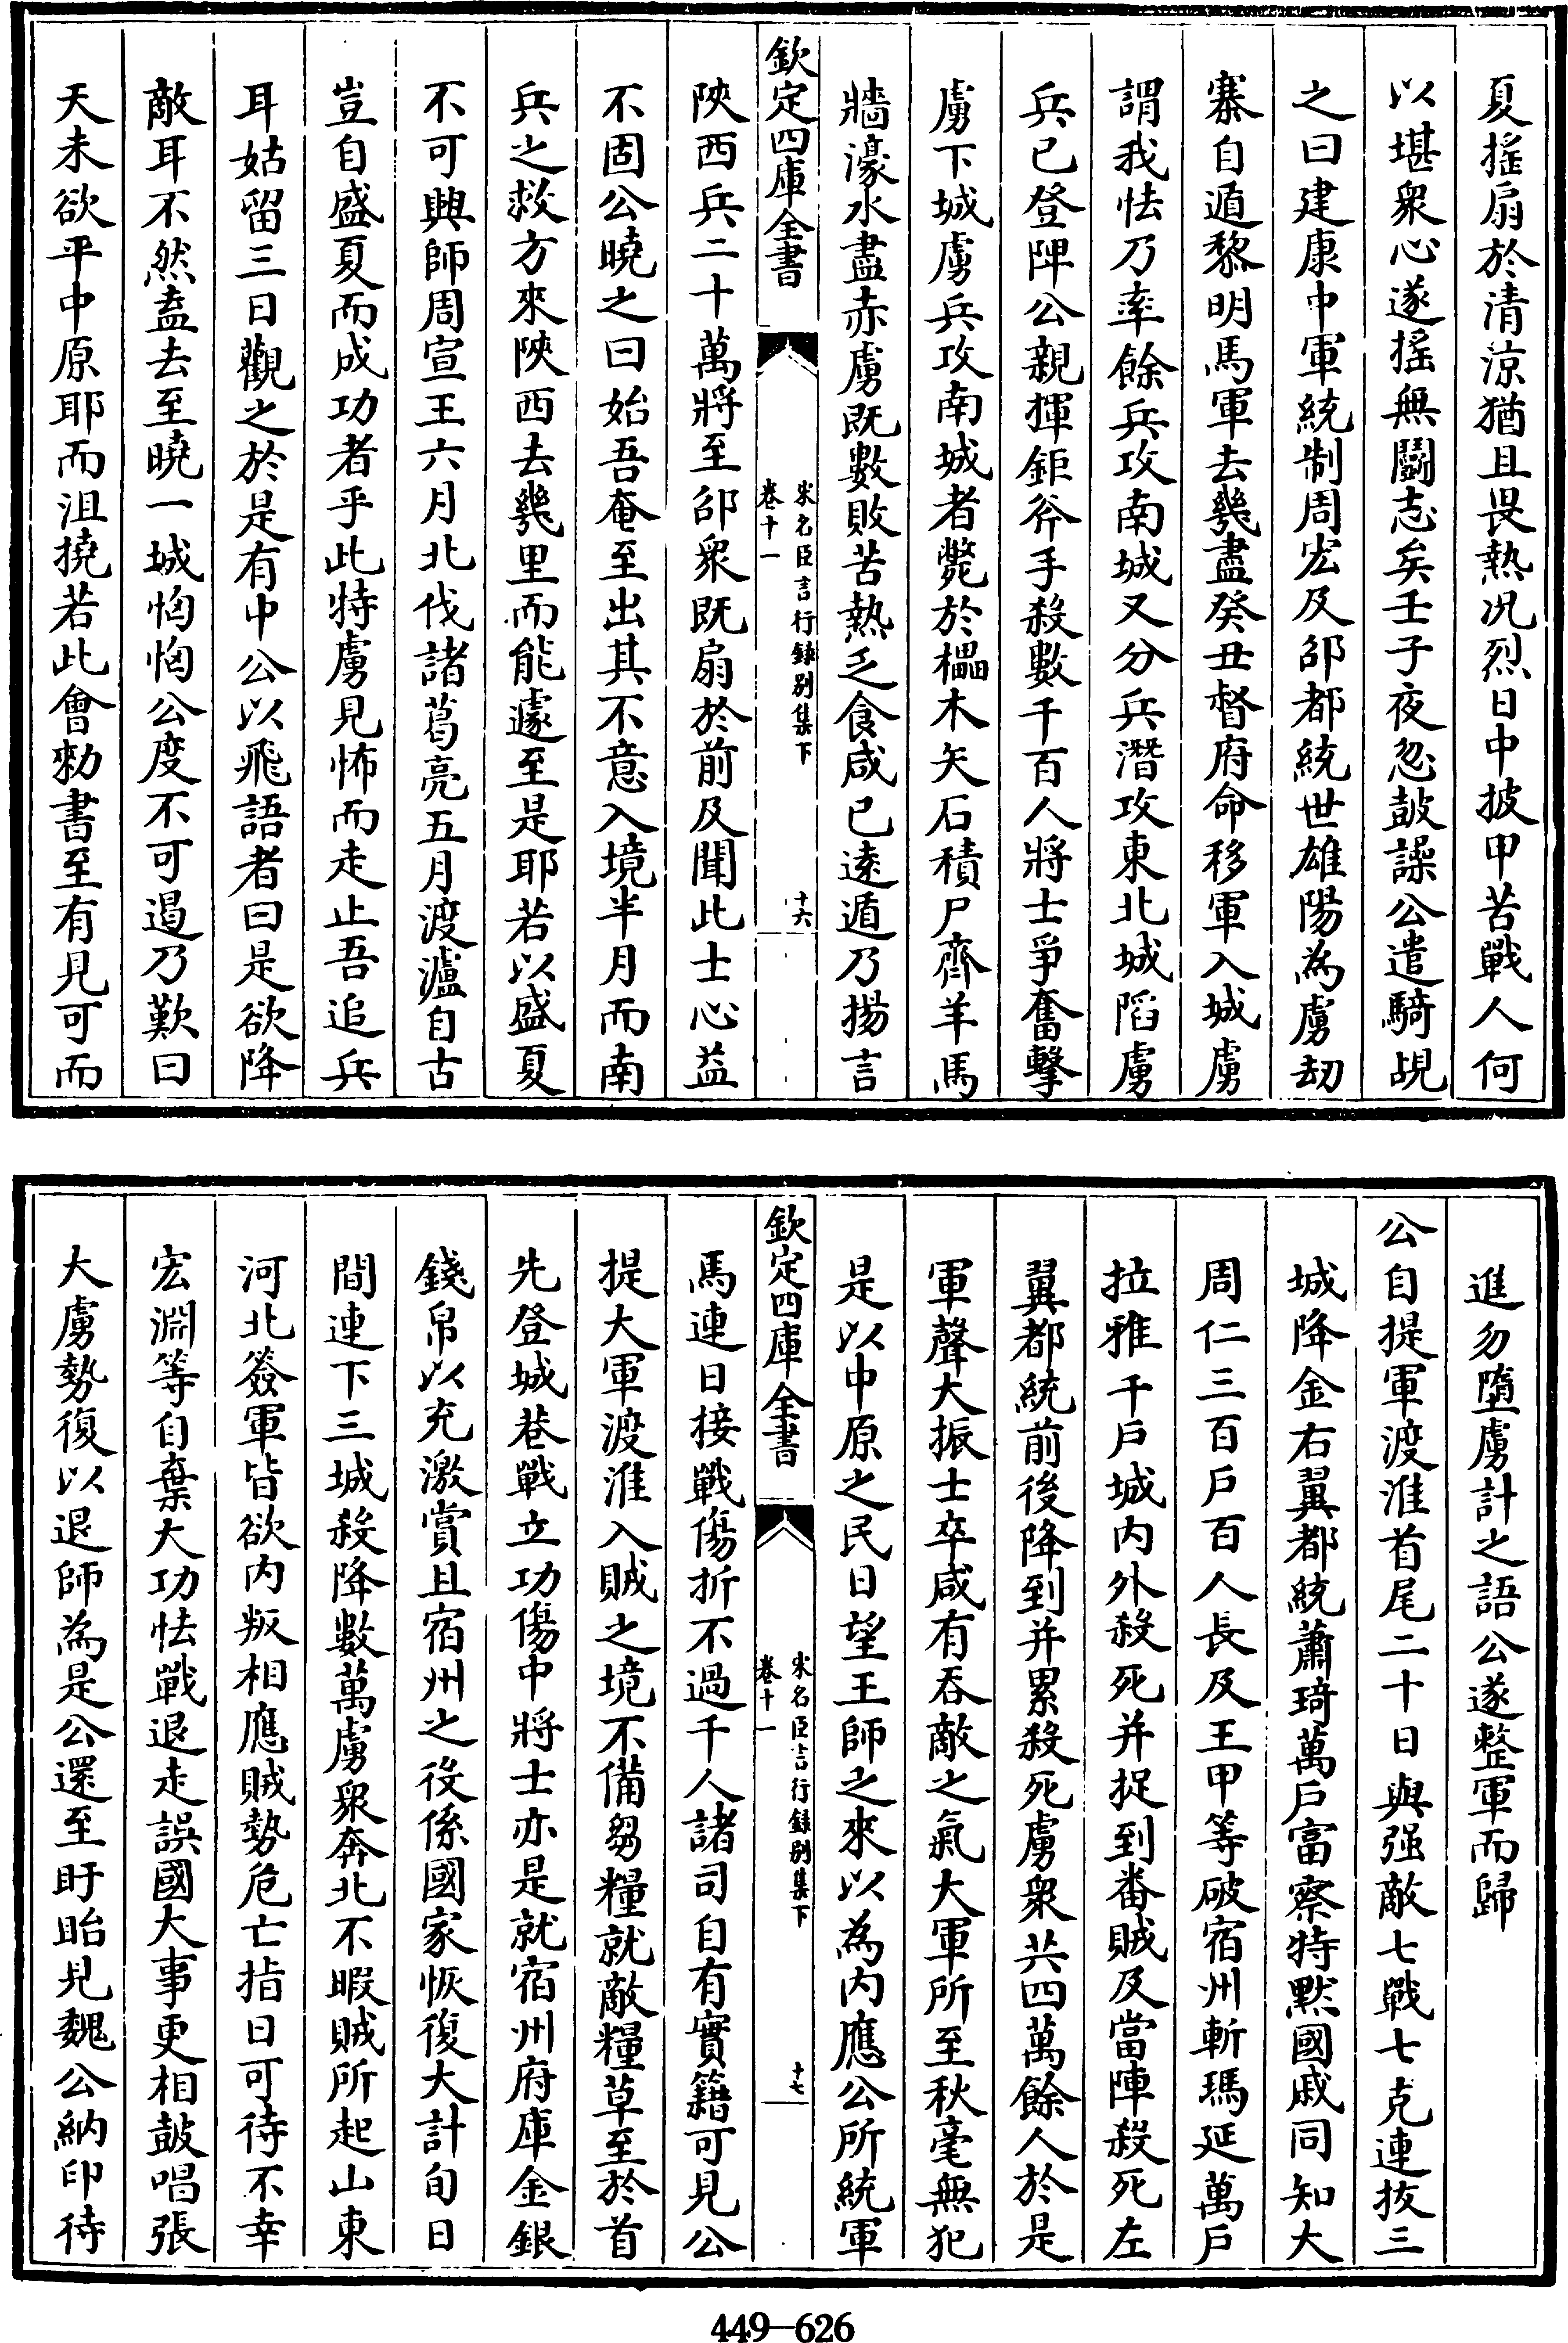 夏搖扇於清涼猶且畏熱況烈日中披甲苦戰人何
以堪衆心遂搖無鬬志矣壬子夜忽鼓譟公遣騎覘
之曰建康中軍統制周宏及邵都統世雄陽為虜刼
寨自遁黎明馬軍去幾盡癸丑督府命移軍入城虜
謂我怯乃率餘兵攻南城又分兵潛攻東北城陷虜
兵已登陴公親揮鉅斧手殺數千百人將士爭奮擊
虜下城虜兵攻南城者斃於櫑木矢石積尸齊羊馬
牆濠水盡赤虜既數敗苦熱乏食咸已遠遁乃揚言
欽定四庫全書
宋名臣言行録别集下
卷十一
十六
陜西兵二十萬將至邵衆既扇於前及聞此士心益
不固公曉之曰始吾奄至出其不意入境半月而南
兵之救方來陜西去幾里而能遽至是耶若以盛夏
不可興師周宣王六月北伐諸葛亮五月渡瀘自古
豈自盛夏而成功者乎此特虜見怖而走止吾追兵
耳姑留三日觀之於是有中公以飛語者曰是欲降
敵耳不然盍去至曉一城恟恟公度不可遏乃歎曰
天未欲平中原耶而沮撓若此會勑書至有見可而
進勿墮虜計之語公遂整軍而歸
公自提軍渡淮首尾二十日與强敵七戰七克連抜三
城降金右翼都統蕭琦萬戶富察特黙國戚同知大
周仁三百戶百人長及王甲等破宿州斬瑪延萬戶
拉雅千戶城内外殺死并捉到番賊及當陣殺死左
翼都統前後降到并累殺死虜衆共四萬餘人於是
軍聲大振士卒咸有吞敵之氣大軍所至秋毫無犯
是以中原之民日望王師之來以為内應公所統軍
欽定四庫全書
宋名臣言行録别集下
卷十一
十七
馬連日接戰傷折不過千人諸司自有實籍可見公
提大軍渡淮入賊之境不備芻糧就敵糧草至於首
先登城巷戰立功傷中將士亦是就宿州府庫金銀
錢帛以充激賞且宿州之役係國家恢復大計旬日
間連下三城殺降數萬虜衆奔北不暇賊所起山東
河北簽軍皆欲内叛相應賊勢危亡指日可待不幸
宏淵等自棄大功怯戰退走誤國大事更相鼓唱張
大虜勢復以退師為是公還至盱眙見魏公納印待
449—626